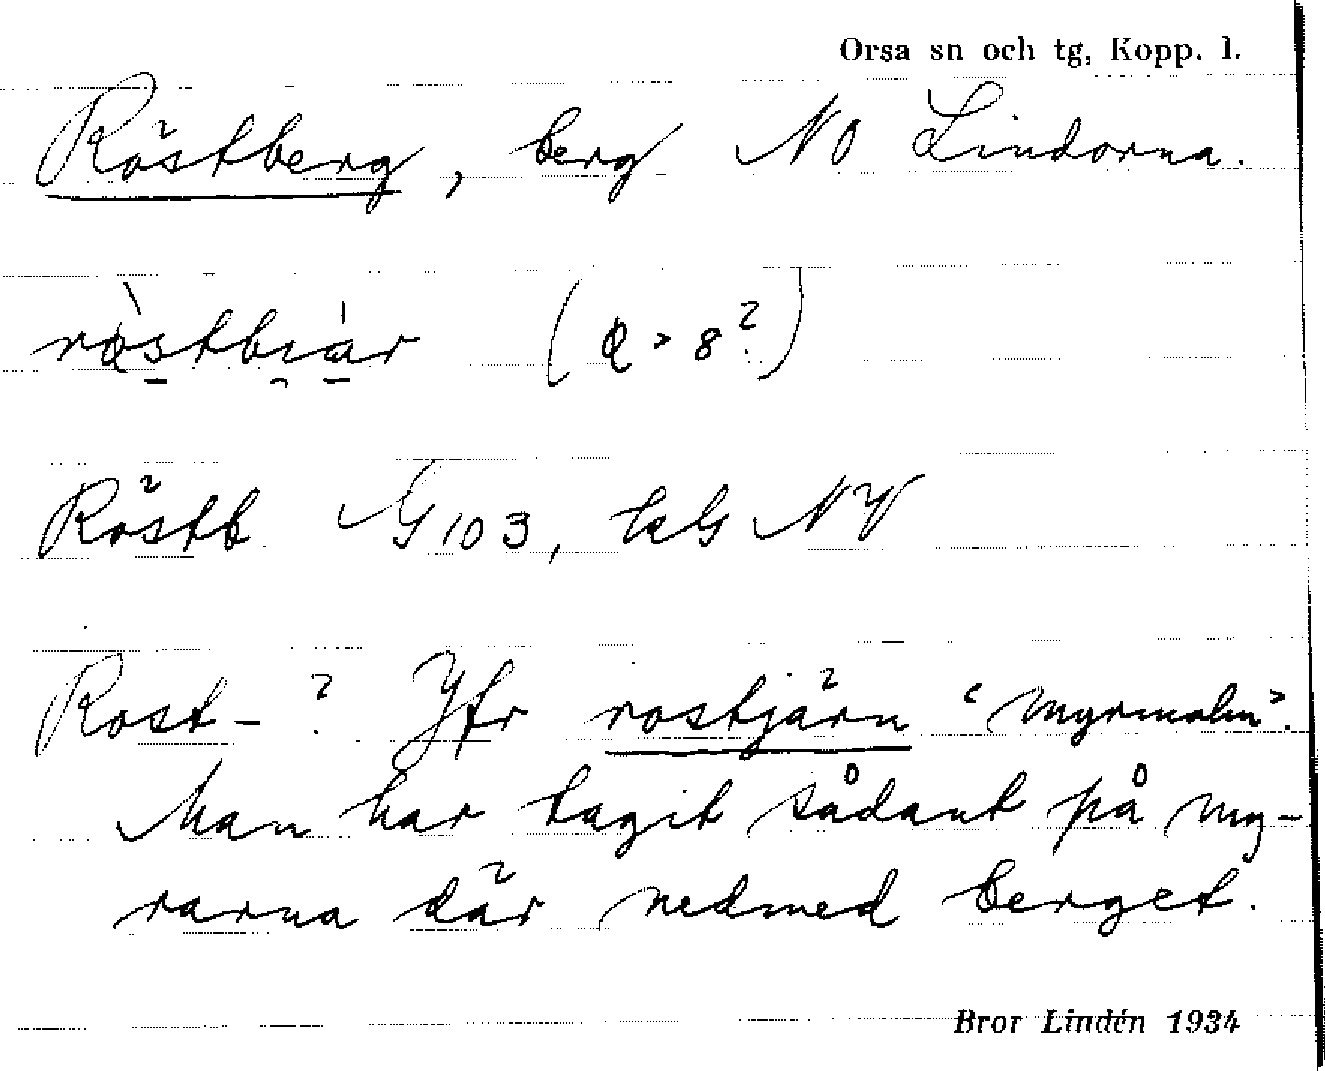 Orsa sn och tg, Kopp. l.
Röstberg, berg NO Lindorna.
Röstb G103, kG NV
Rost-? Jfr rostjärn "myrmalm".
Man har tagit sådant på my-
rarna där nedmed berget.
Bror Lindén 1934